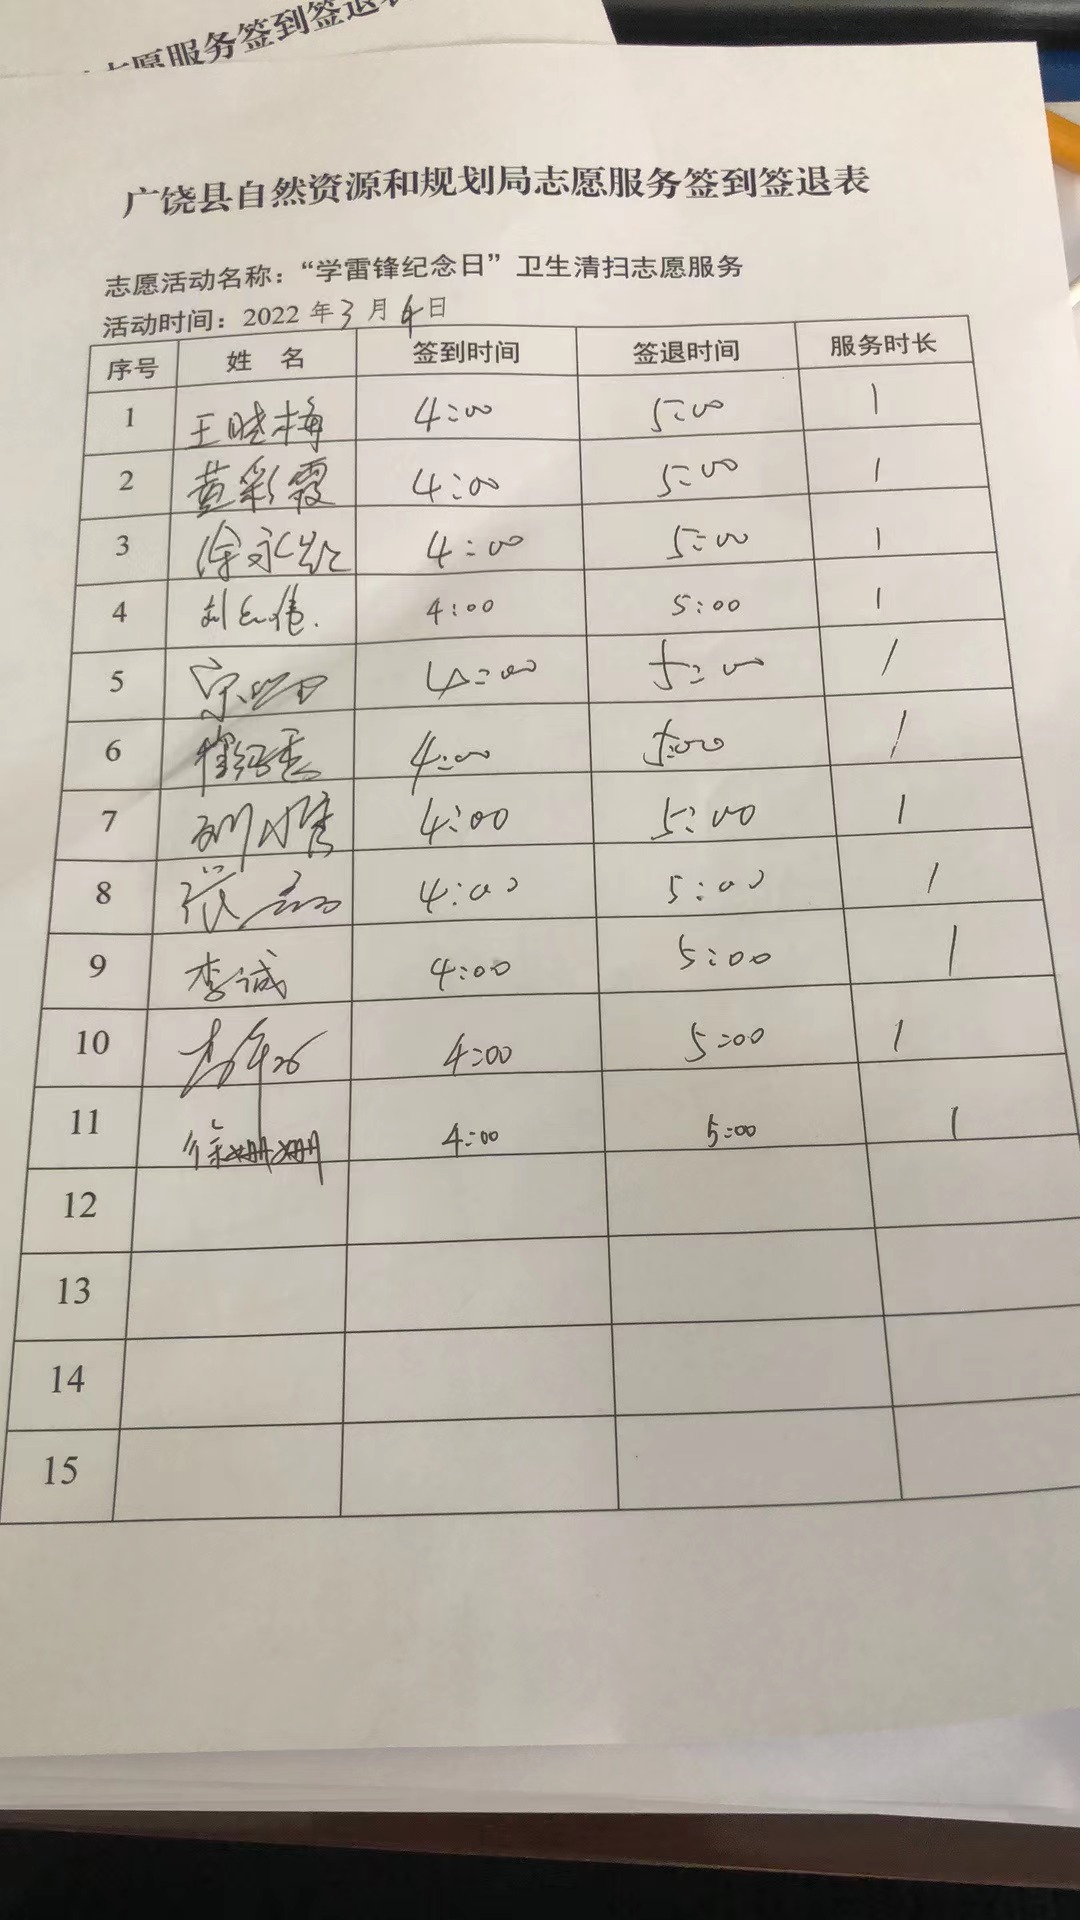 志愿服务签到签退表
广饶县自然资源和规划局志愿服务签到签退表
志愿活动名称：“学雷锋纪念日”卫生清扫志愿服务
活动时间：2022年3月4日
序号 姓 名 签到时间 签退时间 服务时长
1 王晓梅 4:00 5:00 1
2 黄彩霞 4:00 5:00 1
3 徐永 4:00 5:00 1
4 刘 伟 4:00 5:00 1
5 4:00 5:00 1
6 崔 4:00 5:00 1
7 4:00 5:00 1
8 张 4:00 5:00 1
9 李诚 4:00 5:00 1
10 4:00 5:00 1
11 徐姗姗 4:00 5:00 1
12
13
14
15